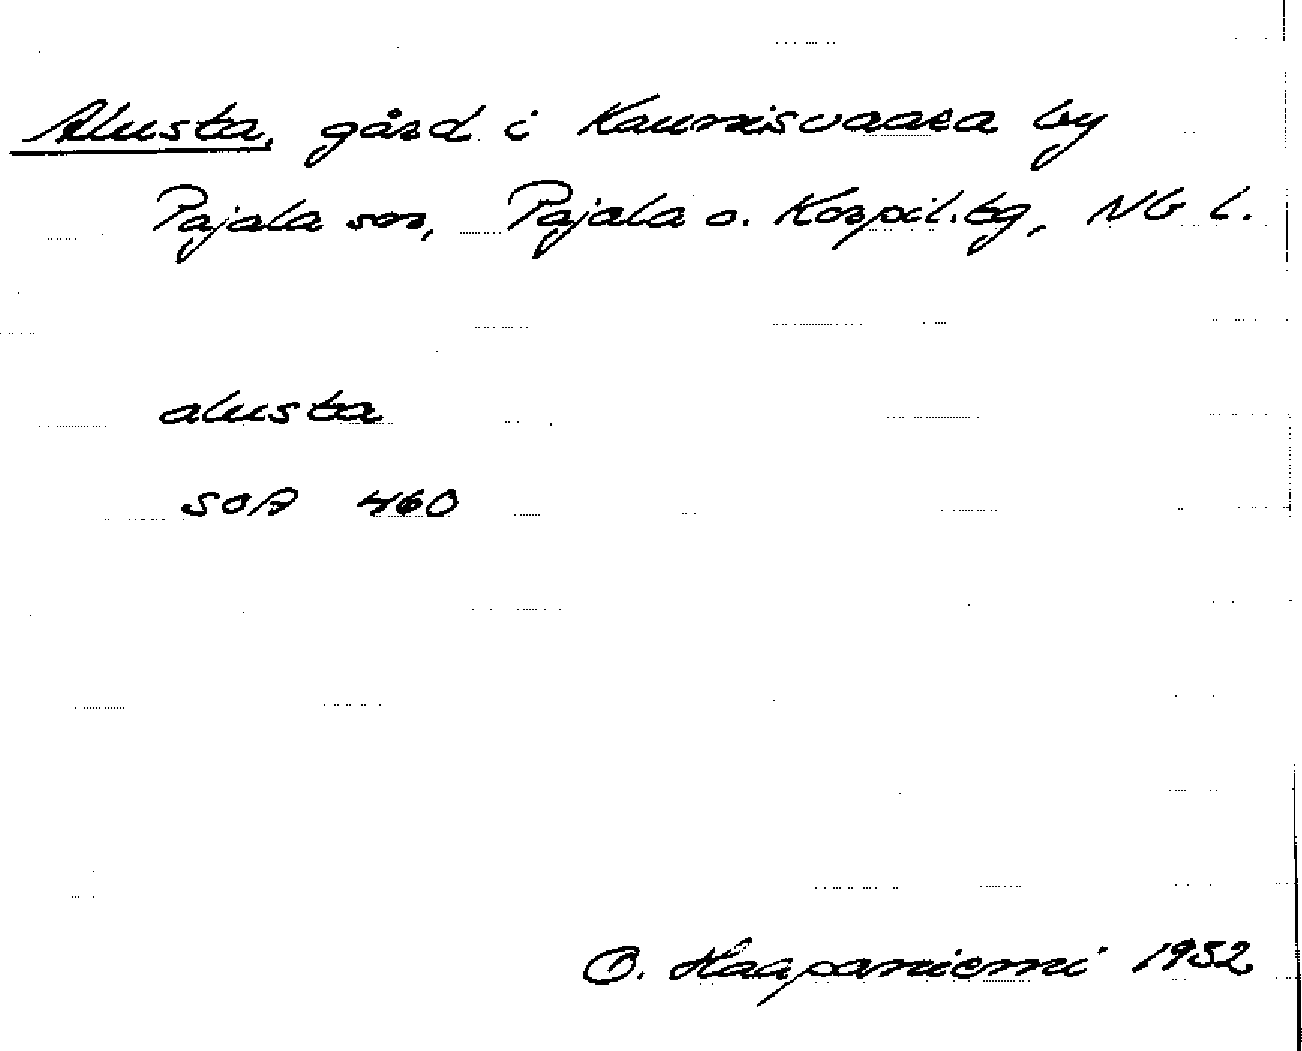 Alusta, gård i Kaunisvaara by
Pajala sn, Pajala o. Korpil. tg, NB l.
alusta
SOA 460
O. Haapaniemi 1952